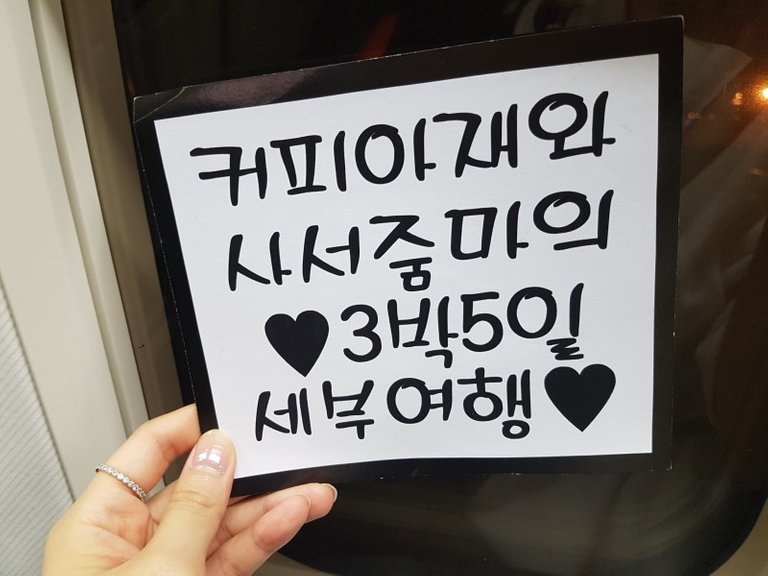 커피아재와
사서줌마의
♥3박5일
세부여행♥